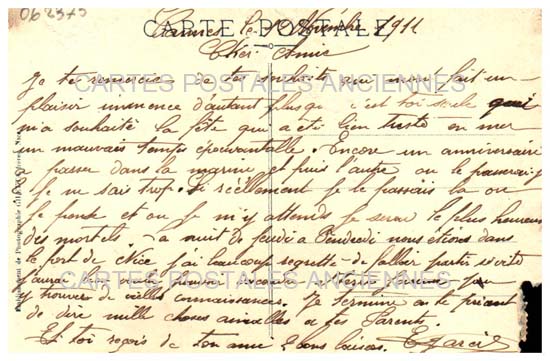 062375
CARTE POSTALE
Cannes le 10 Novembre 1911
Cher Amie
Je te remercie de tes souhaits qui m'ont fait un
plaisir immence d'autant plus que c'est toi seule qui
m'a souhaité la fête qui a été bien triste en mer
un mauvais temps épouvantable. Encore un anniversaire
a passer dans la marine et puis l'autre ou le passerai je
je ne sais trop. Si réellement je le passais la ou
je pense et ou je m'y attends je serai le plus heureux
des mortels. La nuit de jeudi a Vendredi nous étions dans
le port de Nice j'ai beaucoup regretté de
y trouver de vielles connaissances. Je termine en te priant
de dire mille choses aimables a tes Parents.
Et toi reçois de ton ami 2 bons baisers. E Garcin
CARTES POSTALES ANCIENNES
CARTES POSTALES ANCIENNES